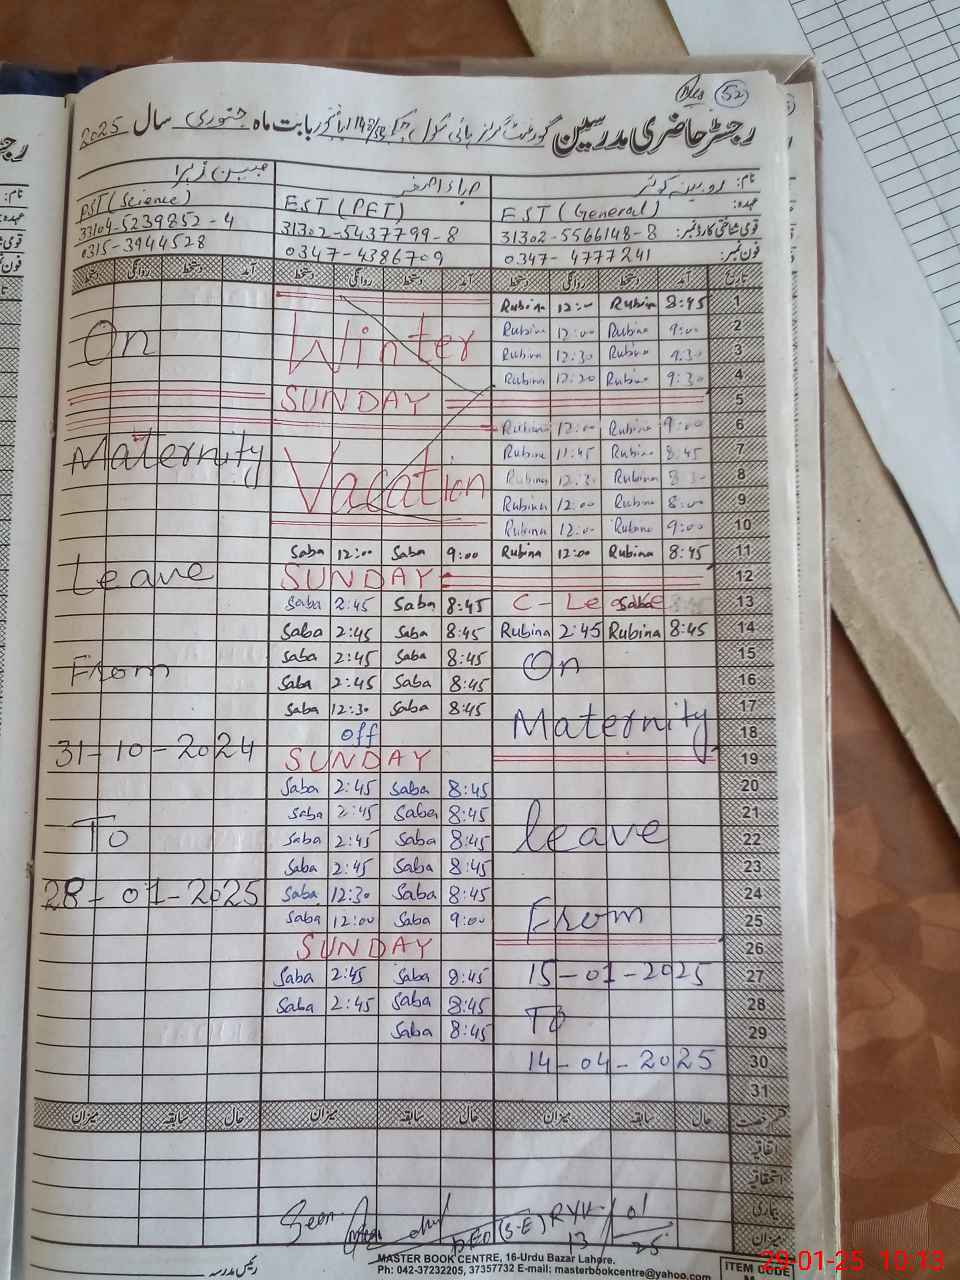 52
رجسٹر حاضری مدرسین گورنمنٹ گرلز ہائی سکول بابت ماہ جنوری سال 2025
نام: روبینہ کوثر صباء اصغر جبین زہرا
عہدہ: EST (General) EST (PET) PST (Science)
قومی شناختی کارڈ نمبر: 31302-5566148-8 31302-5437799-8 33104-5239852-4
فون نمبر: 0347-4777241 0347-4386709 0315-3944528
تاریخ آمد دستخط روانگی دستخط آمد دستخط روانگی دستخط آمد دستخط روانگی دستخط
Rubina 12:00 Rubina 8:45 1
Rubina 12:00 Rubina 9:00 2
On Winter Rubina 12:30 Rubina 9:30 3
Rubina 12:20 Rubina 9:30 4
SUNDAY 5
Rubina 12:00 Rubina 9:00 6
Maternity Vacation Rubina 11:45 Rubina 8:45 7
Rubina 12:30 Rubina 8:30 8
Rubina 12:00 Rubina 8:00 9
Rubina 12:00 Rubina 9:00 10
Saba 12:00 Saba 9:00 Rubina 12:00 Rubina 8:45 11
Leave SUNDAY 12
Saba 2:45 Saba 8:45 C-Leave 13
Saba 2:45 Saba 8:45 Rubina 2:45 Rubina 8:45 14
From Saba 2:45 Saba 8:45 On 15
Saba 2:45 Saba 8:45 16
Saba 12:30 Saba 8:45 17
off Maternity 18
31-10-2024 SUNDAY 19
Saba 2:45 Saba 8:45 20
Saba 2:45 Saba 8:45 21
To Saba 2:45 Saba 8:45 leave 22
Saba 2:45 Saba 8:45 23
28-01-2025 Saba 12:30 Saba 8:45 24
Saba 12:00 Saba 9:00 From 25
SUNDAY 26
Saba 2:45 Saba 8:45 15-01-2025 27
Saba 2:45 Saba 8:45 To 28
Saba 8:45 29
14-04-2025 30
31
رخصت حال سابقہ میزان حال سابقہ میزان حال سابقہ میزان
اتفاقیہ
استحقاقیہ
بیماری
میزان
Seen
DEO (S-E) RYK
13/01/25
رئیس مدرسہ
MASTER BOOK CENTRE, 16-Urdu Bazar Lahore.
Ph: 042-37232205, 37357732 E-mail: masterbookcentre@yahoo.com
ITEM CODE
29-01-25 10:13